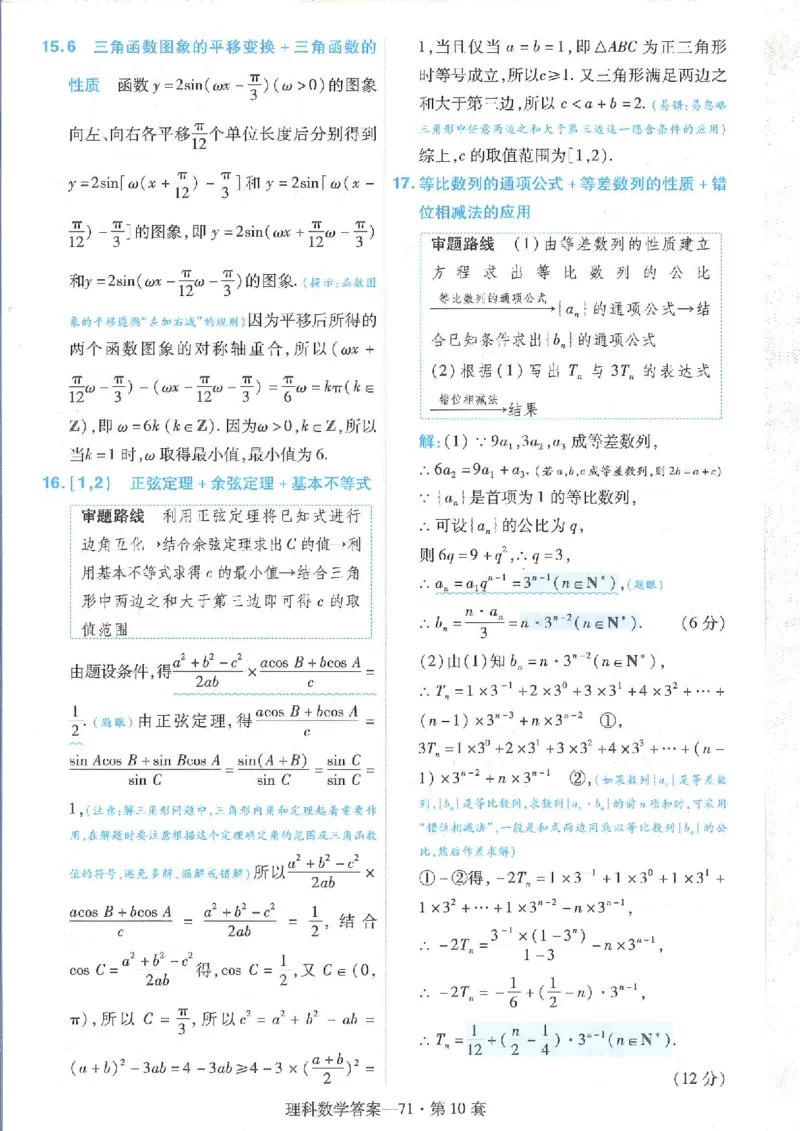 15.6 三角函数图象的平移变换+三角函数的
性质 函数y=2sin(ωx-π/3)(ω>0)的图象
向左、向右各平移π/12个单位长度后分别得到
y=2sin[ω(x+π/12)-π/3]和y=2sin[ω(x-
π/12)-π/3]的图象,即y=2sin(ωx+π/12ω-π/3)
和y=2sin(ωx-π/12ω-π/3)的图象.(提示:函数图
象的平移遵循“左加右减”的规则)因为平移后所得的
两个函数图象的对称轴重合,所以(ωx+
π/12ω-π/3)-(ωx-π/12ω-π/3)=π/6ω=kπ(k∈
Z),即ω=6k(k∈Z).因为ω>0,k∈Z,所以
当k=1时,ω取得最小值,最小值为6.
16.[1,2) 正弦定理+余弦定理+基本不等式
审题路线 利用正弦定理将已知式进行
边角互化→结合余弦定理求出C的值→利
用基本不等式求得c的最小值→结合三角
形中两边之和大于第三边即可得c的取
值范围
由题设条件,得(a²+b²-c²)/2ab×(acos B+bcos A)/c=
1/2.(题眼)由正弦定理,得(acos B+bcos A)/c=
(sin Acos B+sin Bcos A)/sin C=sin(A+B)/sin C=sin C/sin C=
1,(注意:解三角形问题中,三角形内角和定理起着重要作
用,在解题时要注意根据这个定理确定角的范围及三角函数
值的符号,避免多解、漏解或错解)所以(a²+b²-c²)/2ab×
(acos B+bcos A)/c=(a²+b²-c²)/2ab=1/2,结合
cos C=(a²+b²-c²)/2ab得,cos C=1/2,又C∈(0,
π),所以C=π/3,所以c²=a²+b²-ab=
(a+b)²-3ab=4-3ab≥4-3×((a+b)/2)²=
1,当且仅当a=b=1,即△ABC为正三角形
时等号成立,所以c≥1.又三角形满足两边之
和大于第三边,所以c<a+b=2.(易错:易忽略
三角形中任意两边之和大于第三边这一隐含条件的应用)
综上,c的取值范围为[1,2).
17.等比数列的通项公式+等差数列的性质+错
位相减法的应用
审题路线 (1)由等差数列的性质建立
方程求出等比数列的公比
等比数列的通项公式→{aₙ}的通项公式→结
合已知条件求出{bₙ}的通项公式
(2)根据(1)写出Tₙ与3Tₙ的表达式
错位相减法→结果
解:(1)∵9a₁,3a₂,a₃成等差数列,
∴6a₂=9a₁+a₃.(若a,b,c成等差数列,则2b=a+c)
∵{aₙ}是首项为1的等比数列,
∴可设{aₙ}的公比为q,
则6q=9+q²,∴q=3,
∴aₙ=a₁qⁿ⁻¹=3ⁿ⁻¹(n∈N*),(题眼)
∴bₙ=(n·aₙ)/3=n·3ⁿ⁻²(n∈N*). (6分)
(2)由(1)知bₙ=n·3ⁿ⁻²(n∈N*),
∴Tₙ=1×3⁻¹+2×3⁰+3×3¹+4×3²+…+
(n-1)×3ⁿ⁻³+n×3ⁿ⁻² ①,
3Tₙ=1×3⁰+2×3¹+3×3²+4×3³+…+(n-
1)×3ⁿ⁻²+n×3ⁿ⁻¹ ②,(如果数列{aₙ}是等差数
列,{bₙ}是等比数列,求数列{aₙ·bₙ}的前n项和时,可采用
“错位相减法”,一般是和式两边同乘以等比数列{bₙ}的公
比,然后作差求解)
①-②得,-2Tₙ=1×3⁻¹+1×3⁰+1×3¹+
1×3²+…+1×3ⁿ⁻²-n×3ⁿ⁻¹,
∴-2Tₙ=3⁻¹×(1-3ⁿ)/(1-3)-n×3ⁿ⁻¹,
∴-2Tₙ=-1/6+(1/2-n)·3ⁿ⁻¹,
∴Tₙ=1/12+(n/2-1/4)·3ⁿ⁻¹(n∈N*).
(12分)
理科数学答案—71·第10套